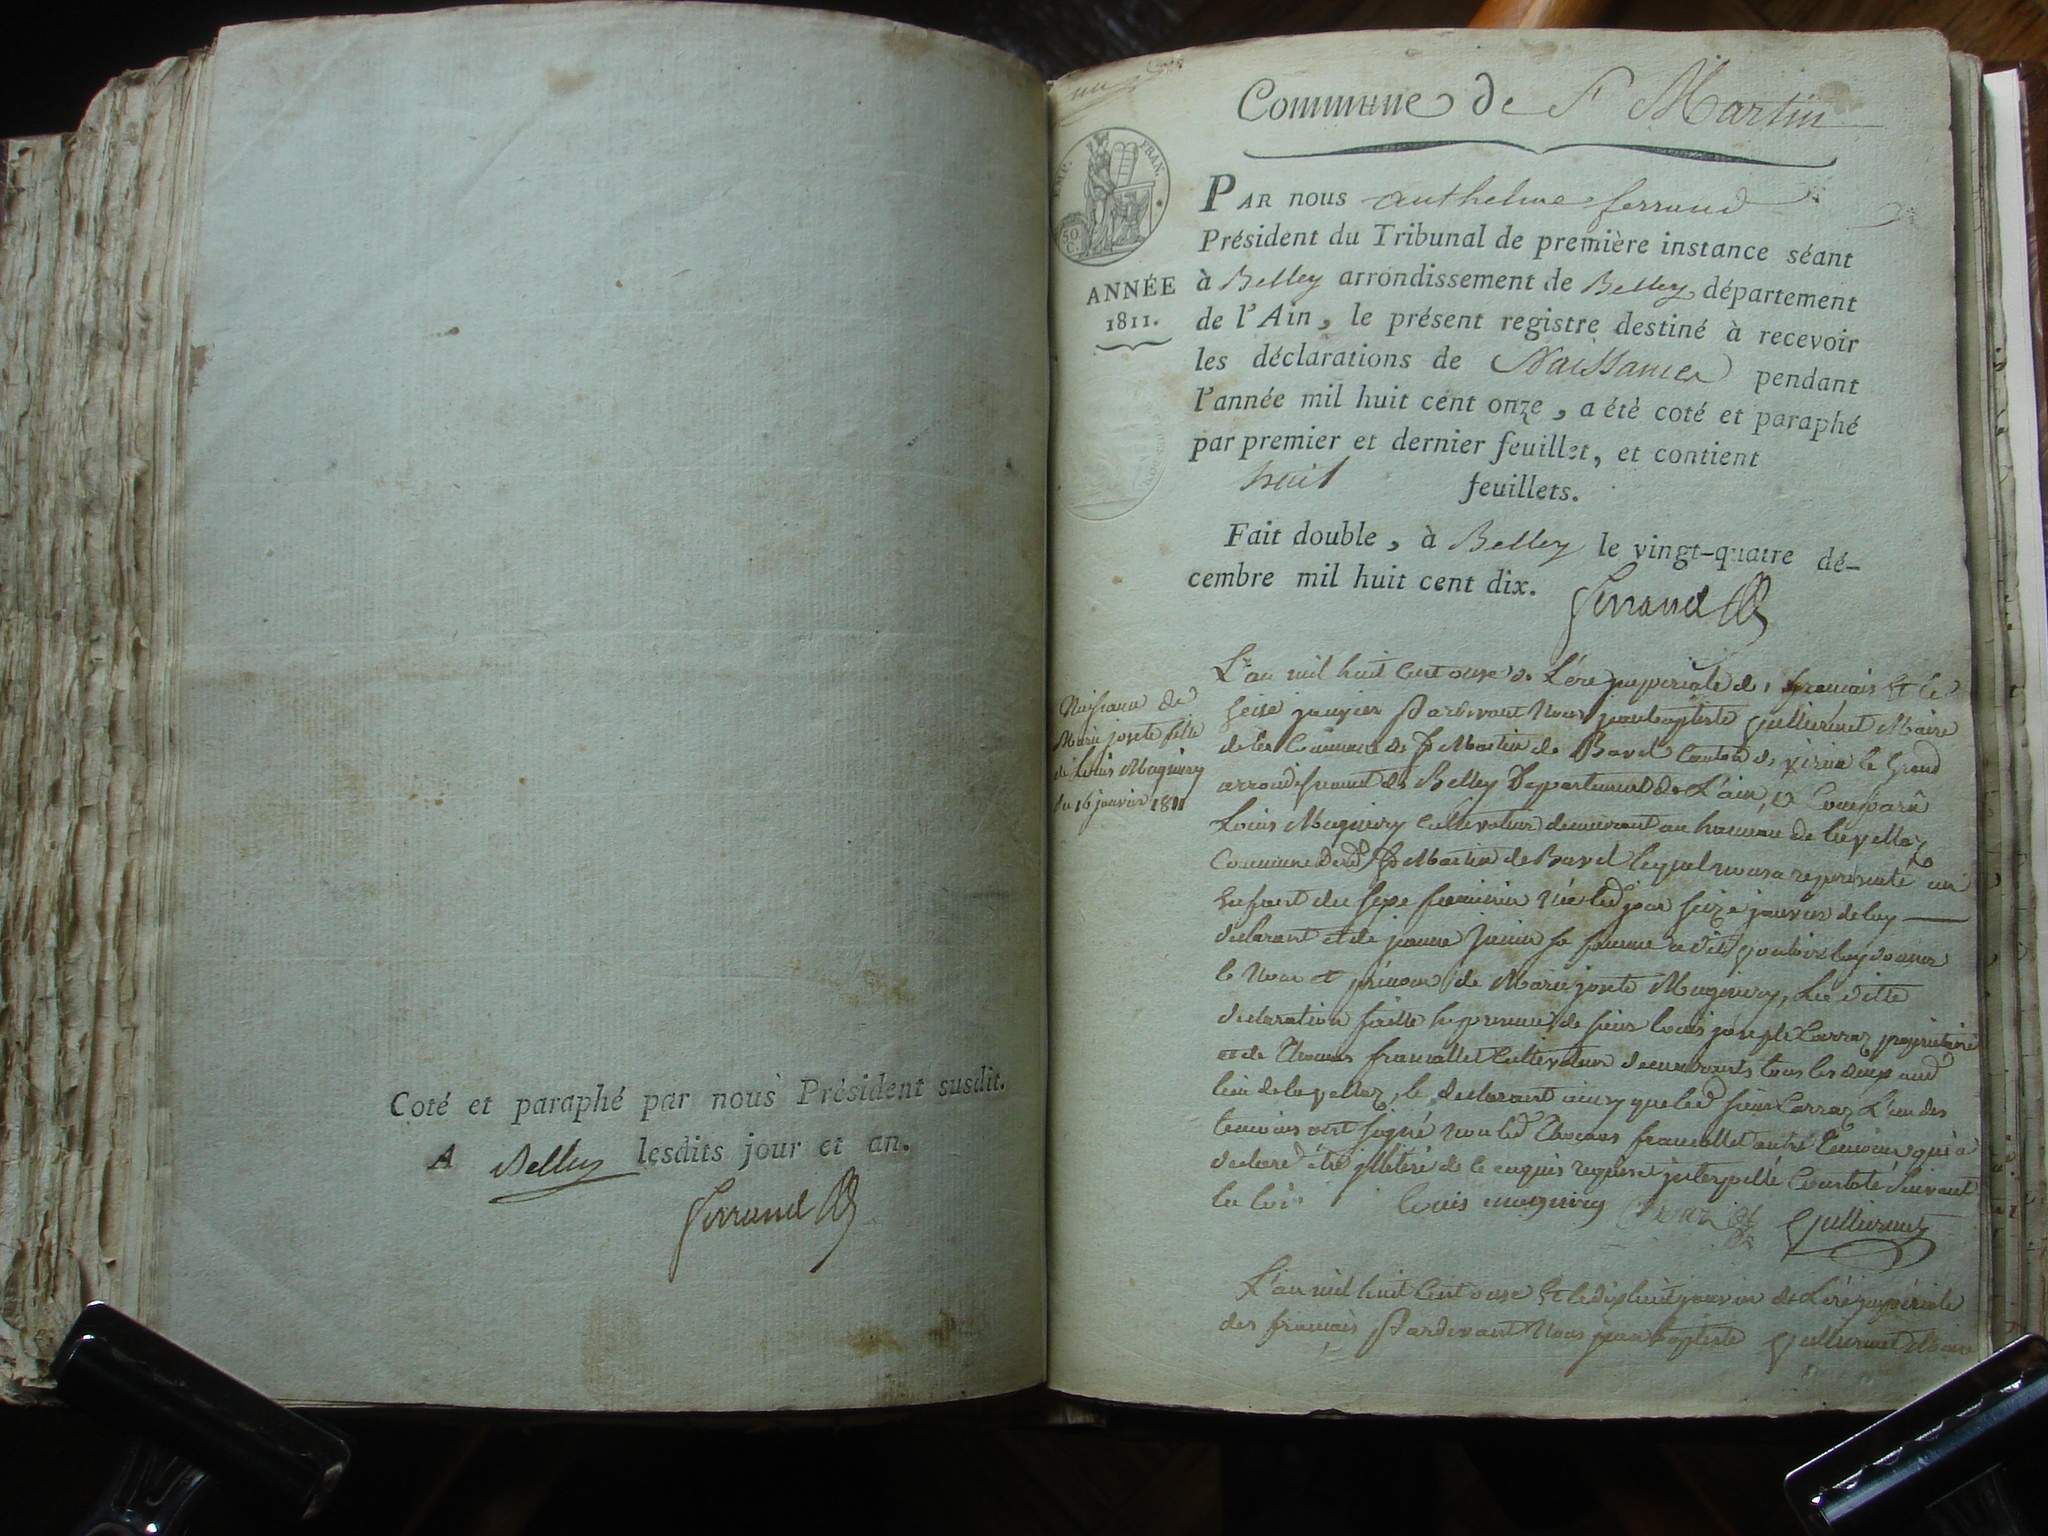 Coté et paraphé par nous Président susdit.
A Belley lesdits jour et an.
Ferrand
Commune de St Martin
EMP. FRAN.
50 C.
ANNÉE
1811.
PAR nous anthelme ferrand
Président du Tribunal de première instance séant
à Belley arrondissement de Belley département
de l'Ain, le présent registre destiné à recevoir
les déclarations de Naissances pendant
l'année mil huit cent onze, a été coté et paraphé
par premier et dernier feuillet, et contient
huit feuillets.
Fait double, à Belley le vingt-quatre dé-
cembre mil huit cent dix.
Ferrand
Naissance de
Marie josete fille
de Louis Mugniery
du 16 janvier 1811
L'an mil huit cent onze de L'ère imperiale des français Et le
seize janvier Pardevant Nous jean baptiste Gulliermet Maire
de la Commune de St Martin de Bavel Canton de virieu le Grand
arrondissement de Belley Departement de L'ain, a Comparû
Louis Mugniery Cultivateur demeurant au hameau de lavellaz
Commune dud St Martin de Bavel lequel nous a represente un
Enfant du sexe feminin née led jour seize janvier de luy
declarant et de jeanne sa femme a dit vouloir luy donner
le Nom et prénom de Marie josete Mugniery, La ditte
declaration faitte En presence de sieur louis joseph Carraz propriétaire
et de Thomas francallet Cultivateur demeurants tous les deux aud
lieu de lavellaz, le declarant ainsy que led sieur Carraz L'un des
temoins ont signé non led Thomas francallet autre temoin qui a
declaré être illeteré de ce enquis requis et interpellé Constaté suivant
la loi louis mugniery Carraz Gulliermet
L'an mil huit Cent onze Et le dixhuit janvier de L'ère impériale
des français Pardevant Nous jean baptiste Gulliermet Maire